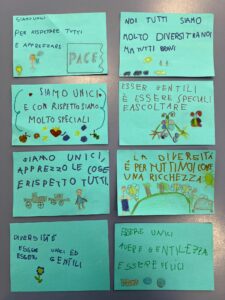 SIAMO UNICI
PER RISPETTARE TUTTI
E APPREZZARE
PACE
NOI TUTTI SIAMO
MOLTO DIVERSI TRA NOI
MA TUTTI BRAVI
SIAMO UNICI
E CON RISPETTO SIAMO
MOLTO SPECIALI
ESSER GENTILI
È ESSERE SPECIALI
ASCOLTARE
SIAMO UNICI,
APPREZZO LE COSE
E RISPETTO TUTTI.
LA DIVERSITÀ
È PER TUTTI NOI COME
UNA RICCHEZZA
DIVERSITÀ È
ESSERE UNICI ED
ESSERE GENTILI
ESSERE UNICI
AVERE GENTILEZZA
ESSERE FELICI